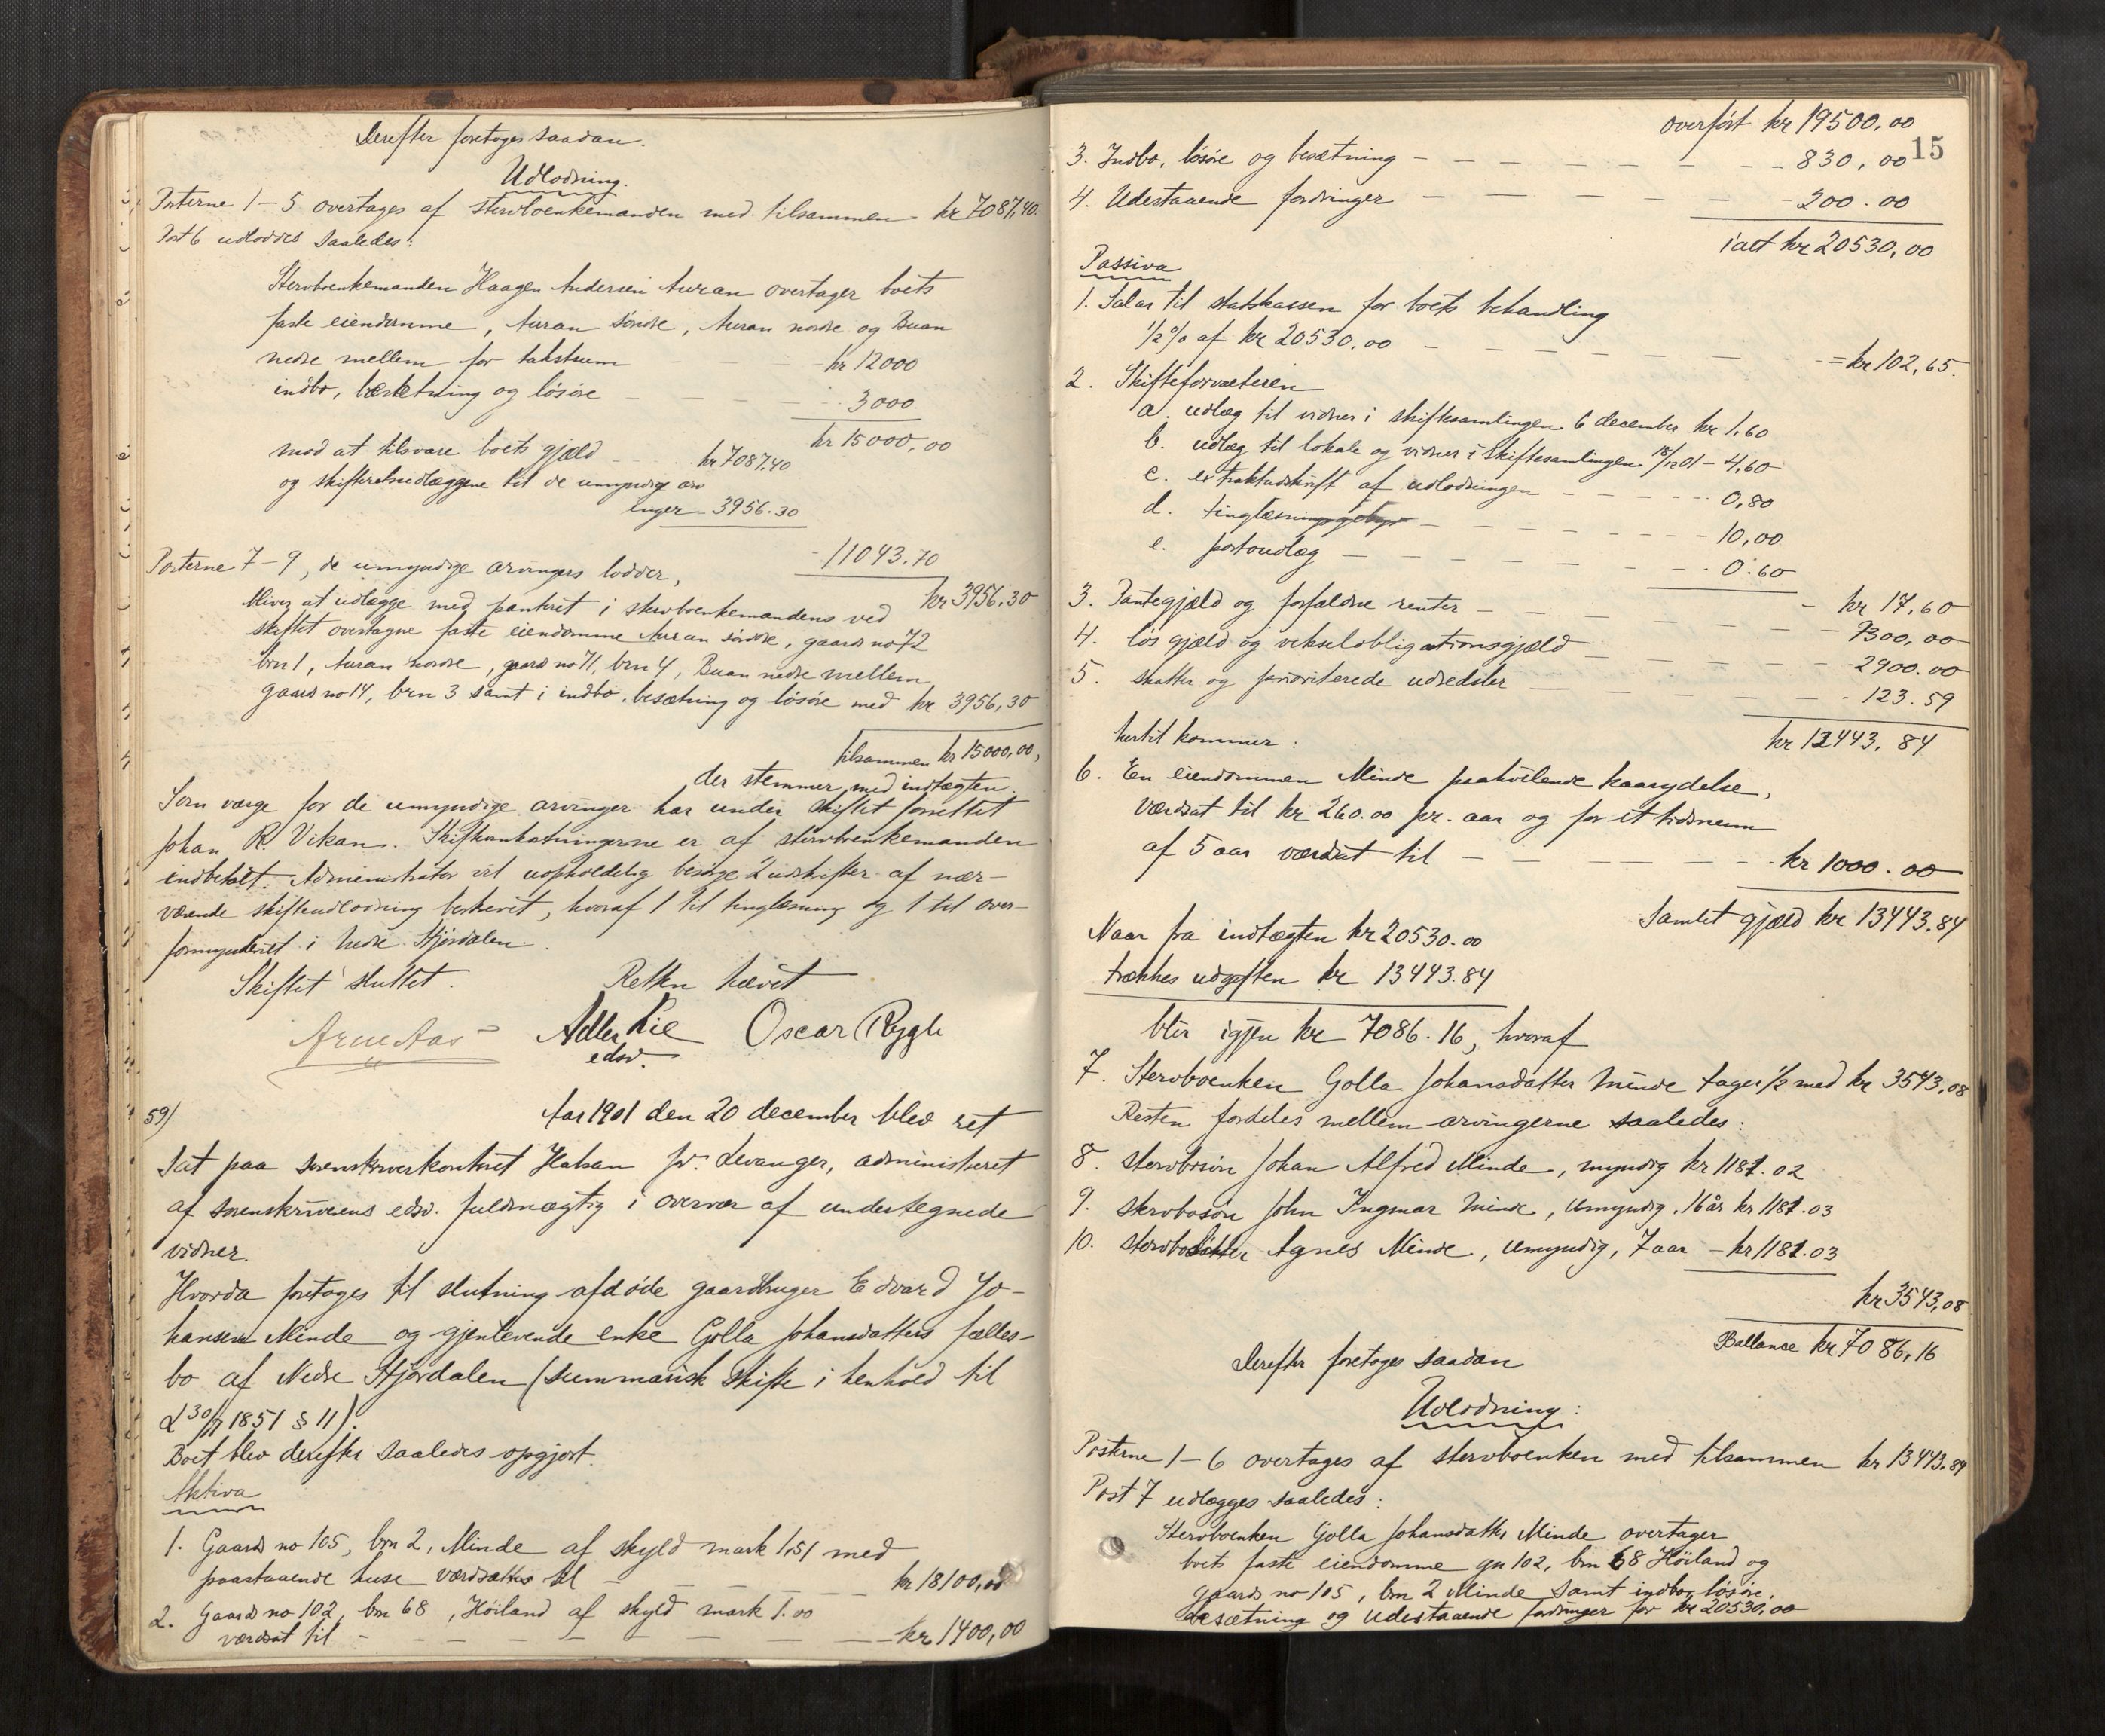 Derefter foretoges saadan.
Udlodning.
Posterne 1-5 overtages af sterboenkemanden med tilsammen kr 7087,40.
Post 6 udloddes saaledes:
Sterboenkemanden Haagen Andersen Auran overtager boets
faste eiendomme, Auran søndre, Auran nordre og Buan
nedre mellem for takstsum - kr 12000
indbo, besætning og løsøre - 3000
kr 15000,00
mod at tilsvare boets gjæld kr 7087,40
og skifteretsudlæggene til de umyndige arv
inger - 3956.30
- 11043.70
kr 3956,30
Posterne 7-9, de umyndige arvingers lodder,
bliver at udlægge med panteret i sterboenkemandens ved
skiftet overtagne faste eiendomme Auran søndre, gaards no 72
brn 1, Auran nordre, gaards no 71, brn 4, Buan nedre mellem
gaards no 14, brn 3 samt i indbo, besætning og løsøre med kr 3956,30
tilsammen kr 15000,00,
der stemmer med indtægten.
Som værge for de umyndige arvinger har under skiftet forrettet
Johan R Vikan. Skifteomkostningerne er af sterboenkemanden
indbetalt. Administrator vil uopholdelig besørge 2 udskrifter af nær-
værende skifteudlodning beskrevet, hvoraf 1 til tinglæsning og 1 til over-
formynderiet i Nedre Stjørdalen.
Skiftet sluttet. Retten hævet
Arne Aas Adler Lie Oscar Rygh
edsv.
59/ Aar 1901 den 20 december blev ret
sat paa sorenskriverkontoret Halsan pr. Levanger, administreret
af sorenskriverens edsv. fuldmægtig i overvær af undertegnede
vidner.
Hvorda foretoges til slutning afdøde gaardbruger Edvard Jo-
hansen Minde og gjenlevende enke Golla Johansdatters fælles-
bo af Nedre Stjørdalen (summarisk skifte i henhold til
L 30/7 1851 § 11).
Boet blev derefter saaledes opgjort.
Aktiva
1. Gaards no 105, brn 2, Minde af skyld mark 1,51 med
paastaaende huse værdsættes til - kr 18100,00
2. Gaards no 102, brn 68, Høiland af skyld mark 1.00
værdsat til - kr 1400,00
overført kr 19500,00
15
3. Indbo, løsøre og besætning - 830,00
4. Udestaaende fordringer - 200.00
ialt kr 20530,00
Passiva
1. Salær til statskassen for boets behandling
1/2 % af kr 20530.00 = kr 102,65.
2. Skifteforvalteren
a. udlæg til vidner i skiftesamlingen 6 december kr 1,60
b. udlæg til lokale og vidner i skiftesamlingen 18/12 01 - 4,60
c. extraktudskrift af udlodningen - 0,80
d. tinglæsningsgebyr - 10,00
e. portoudlæg - 0.60
- kr 17,60
3. Pantegjæld og forfaldne renter - 9300,00
4. løs gjæld og vekselobligationsgjæld - 2900.00
5. skatter og prioriterede udredsler - 123.59
kr 12443,84
hertil kommer:
6. En eiendommen Minde paahvilende kaarydelse,
værdsat til kr 260.00 pr. aar og for et tidsrum
af 5 aar værdsat til - kr 1000.00
Samlet gjæld kr 13443.84
Naar fra indtægten kr 20530.00
trækkes udgiften kr 13443.84
blir igjen kr 7086.16, hvoraf
7. Sterboenken Golla Johansdatter Minde tager 1/2 med kr 3543,08
Resten fordeles mellem arvingerne saaledes:
8. sterbosøn Johan Alfred Minde, myndig kr 1181.02
9. sterbosøn John Ingmar Minde, umyndig, 16 år kr 1181.03
10. sterbodatter Agnes Minde, umyndig, 7 aar - kr 1181.03
kr 3543,08
Ballance kr 7086,16
Derefter foretoges saadan
Udlodning:
Posterne 1-6 overtages af sterboenken med tilsammen kr 13443.84
Post 7 udlægges saaledes:
Sterboenken Golla Johansdatter Minde overtager
boets faste eiendomme gn 102, brn 68 Høiland og
gaards no 105, brn 2 Minde samt indbo, løsøre,
besætning og udestaaende fordringer for kr 20530.00